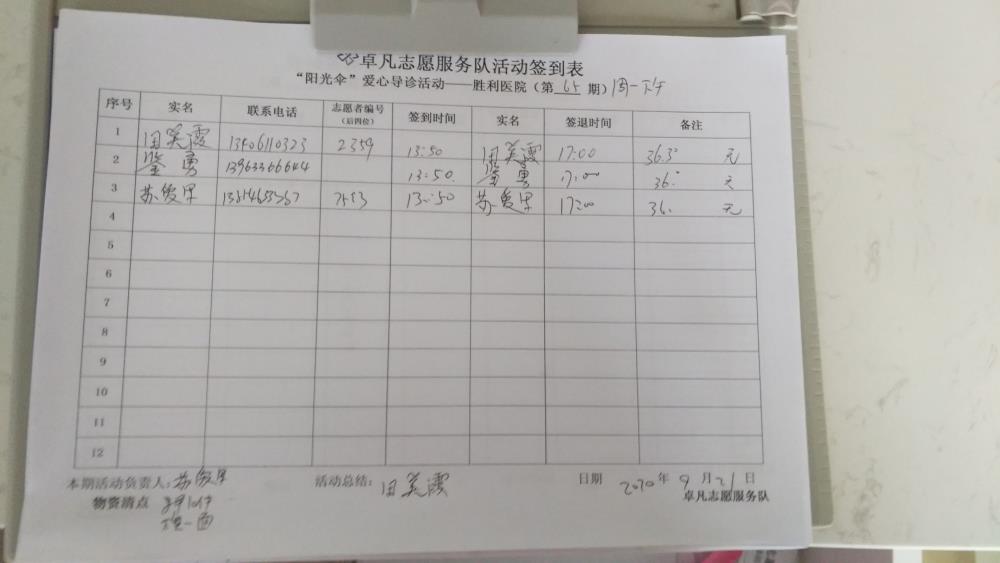 卓凡志愿服务队活动签到表
“阳光伞”爱心导诊活动——胜利医院（第 65 期）周一下午
序号 实名 联系电话 志愿者编号（后四位） 签到时间 实名 签退时间 备注
1 田美霞 13406110323 2359 13:50 田美霞 17:00 36.3° 无
2 勇 13963366644 13:50. 勇 17:00 36. 无
3 苏爱军 13:50 苏爱军 17:00 36. 无
4
5
6
7
8
9
10
11
12
本期活动负责人：苏爱军 活动总结：田美霞 日期 2020年9月21日
物资清点 卓凡志愿服务队